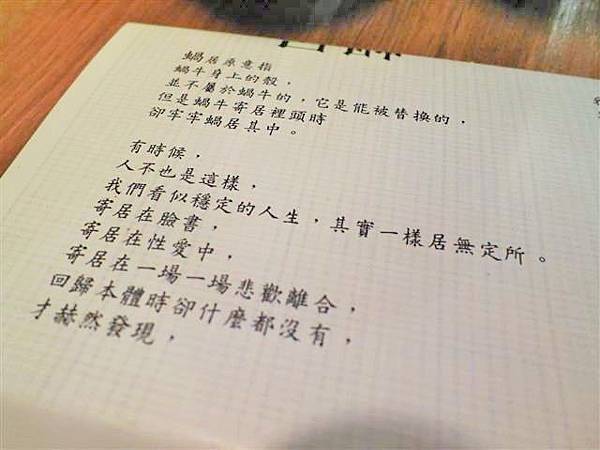 蝸居原意指
蝸牛身上的殼，
並不屬於蝸牛的，它是能被替換的，
但是蝸牛寄居裡頭時
卻牢牢蝸居其中。
有時候，
人不也是這樣，
我們看似穩定的人生，其實一樣居無定所。
寄居在臉書，
寄居在性愛中，
寄居在一場一場悲歡離合，
回歸本體時卻什麼都沒有，
才赫然發現，